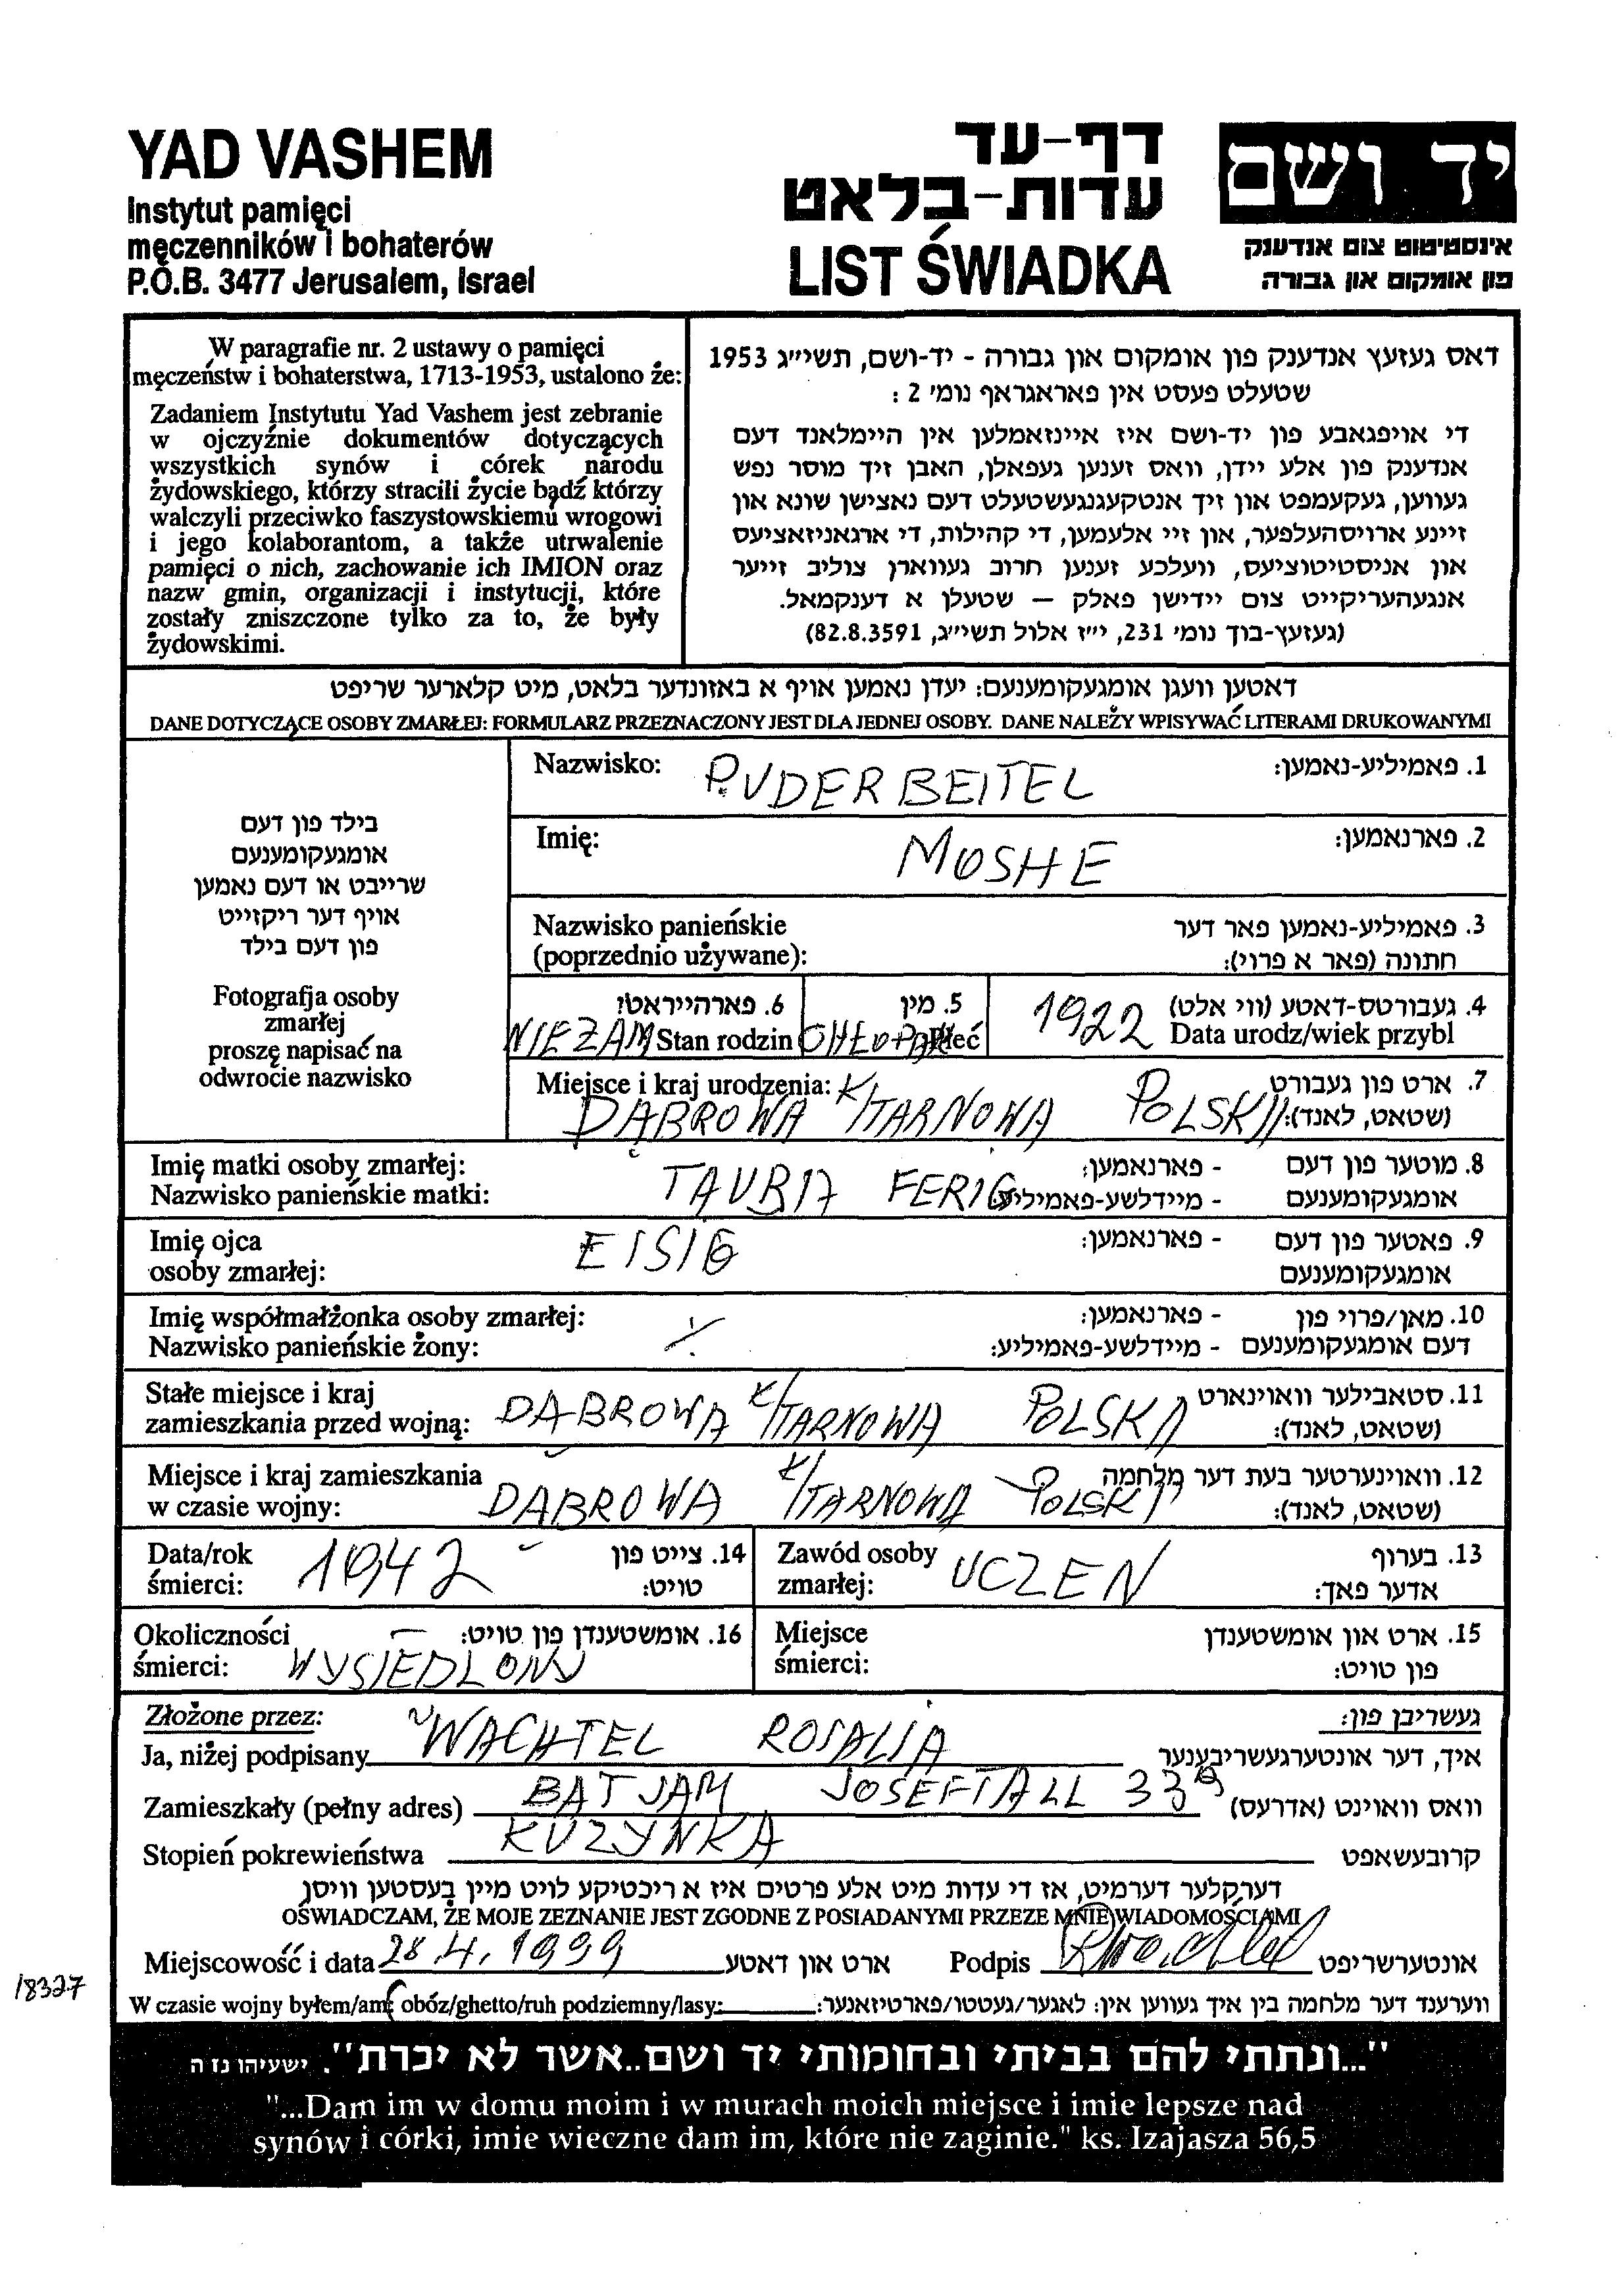 YAD VASHEM
Instytut pamięci
męczenników i bohaterów
P.O.B. 3477 Jerusalem, Israel
דף-עד
עדות-בלאט
LIST ŚWIADKA
יד ושם
אינסטיטוט צום אנדענק
פון אומקום און גבורה
W paragrafie nr. 2 ustawy o pamięci
męczeństw i bohaterstwa, 1713-1953, ustalono że:
Zadaniem Instytutu Yad Vashem jest zebranie
w ojczyźnie dokumentów dotyczących
wszystkich synów i córek narodu
żydowskiego, którzy stracili życie bądź którzy
walczyli przeciwko faszystowskiemu wrogowi
i jego kolaborantom, a także utrwalenie
pamięci o nich, zachowanie ich IMION oraz
nazw gmin, organizacji i instytucji, które
zostały zniszczone tylko za to, że były
żydowskimi.
דאס געזעץ אנדענק פון אומקום און גבורה - יד-ושם, תשי״ג 1953
שטעלט פעסט אין פאראגראף נומ׳ 2 :
די אויפגאבע פון יד-ושם איז איינזאמלען אין היימלאנד דעם
אנדענק פון אלע יידן, וואס זענען געפאלן, האבן זיך מוסר נפש
געווען, געקעמפט און זיך אנטקעגנגעשטעלט דעם נאצישן שונא און
זיינע ארויסהעלפער, און זיי אלעמען, די קהילות, די ארגאניזאציעס
און אניסטיטוציעס, וועלכע זענען חרוב געווארן צוליב זייער
אנגעהעריקייט צום יידישן פאלק – שטעלן א דענקמאל.
(געזעץ-בוך נומ׳ 231, י״ז אלול תשי״ג, 82.8.3591)
דאטען וועגן אומגעקומענעם: יעדן נאמען אויף א באזונדער בלאט, מיט קלארער שריפט
DANE DOTYCZĄCE OSOBY ZMARŁEJ: FORMULARZ PRZEZNACZONY JEST DLA JEDNEJ OSOBY. DANE NALEŻY WPISYWAĆ LITERAMI DRUKOWANYMI
בילד פון דעם
אומגעקומענעם
שרייבט או דעם נאמען
אויף דער ריקזייט
פון דעם בילד
Fotografja osoby
zmarłej
proszę napisać na
odwrocie nazwisko
Nazwisko: PUDERBEITEL 1. פאמיליע-נאמען:
Imię: MOSHE 2. פארנאמען:
Nazwisko panieńskie 3. פאמיליע-נאמען פאר דער
(poprzednio używane): חתונה (פאר א פרוי):
6. פארהייראט? 5. מין 1922 4. געבורטס-דאטע (ווי אלט)
NIEZAM Stan rodzin CHŁOPAK Płeć Data urodz/wiek przybl
Miejsce i kraj urodzenia: 7. ארט פון געבורט
DĄBROWA K/TARNOWA POLSKA (שטאט, לאנד):
Imię matki osoby zmarłej: - פארנאמען: 8. מוטער פון דעם
Nazwisko panieńskie matki: TAUBA FERIG - מיידלשע-פאמיליע: אומגעקומענעם
Imię ojca EISIG - פארנאמען: 9. פאטער פון דעם
osoby zmarłej: אומגעקומענעם
Imię współmałżonka osoby zmarłej: - פארנאמען: 10. מאן/פרוי פון
Nazwisko panieńskie żony: - מיידלשע-פאמיליע: דעם אומגעקומענעם
Stałe miejsce i kraj 11. סטאבילער וואוינארט
zamieszkania przed wojną: DĄBROWA K/TARNOWA POLSKA (שטאט, לאנד):
Miejsce i kraj zamieszkania 12. וואוינערטער בעת דער מלחמה
w czasie wojny: DĄBROWA K/TARNOWA POLSKA (שטאט, לאנד):
Data/rok 1942 14. צייט פון Zawód osoby UCZEN 13. בערוף
śmierci: טויט: zmarłej: אדער פאך:
Okoliczności 16. אומשטענדן פון טויט: Miejsce 15. ארט און אומשטענדן
śmierci: WYSIEDLONY śmierci: פון טויט:
Złożone przez: געשריבן פון:
Ja, niżej podpisany WACHTEL ROSALIA איך, דער אונטערגעשריבענער
Zamieszkały (pełny adres) BAT JAM JOSEFTALL 33 וואס וואוינט (אדרעס)
Stopień pokrewieństwa KUZYNKA קרובעשאפט
דערקלער דערמיט, אז די עדות מיט אלע פרטים איז א ריכטיקע לויט מיין בעסטען וויסן
OŚWIADCZAM, ŻE MOJE ZEZNANIE JEST ZGODNE Z POSIADANYMI PRZEZE MNIE WIADOMOŚCIAMI
Miejscowość i data 28.4.1999 ארט און דאטע Podpis RWachtel אונטערשריפט
18327
W czasie wojny byłem/am obóz/ghetto/ruh podziemny/lasy: ווערענד דער מלחמה בין איך געווען אין: לאגער/געטטו/פארטיזאנער:
"...ונתתי להם בביתי ובחומותי יד ושם..אשר לא יכרת". ישעיהו נז ה
"...Dam im w domu moim i w murach moich miejsce i imie lepsze nad
synów i córki, imie wieczne dam im, które nie zaginie." ks. Izajasza 56,5